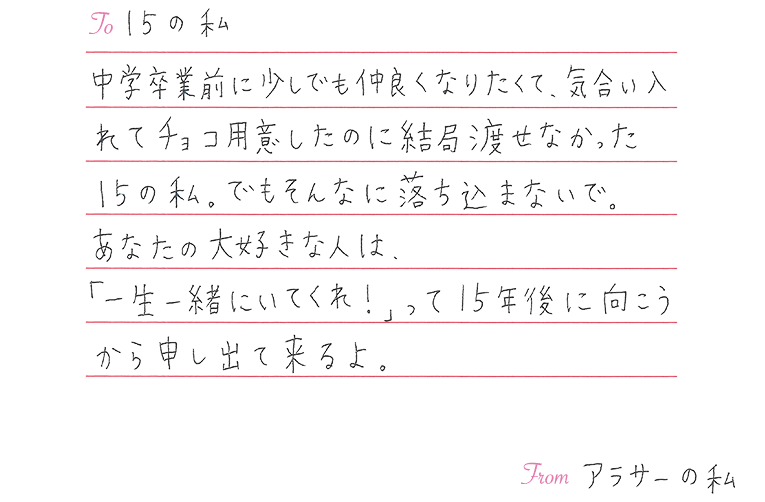 To 15の私
中学卒業前に少しでも仲良くなりたくて、気合い入
れてチョコ用意したのに結局渡せなかった
15の私。でもそんなに落ち込まないで。
あなたの大好きな人は、
「一生一緒にいてくれ!」って15年後に向こう
から申し出て来るよ。
From アラサーの私